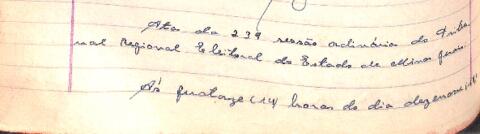 Ata da 239 sessão ordinária do Tribu
nal Regional Eleitoral do Estado de Minas Gerais.
Às quatorze (14) horas do dia dezenove (19)